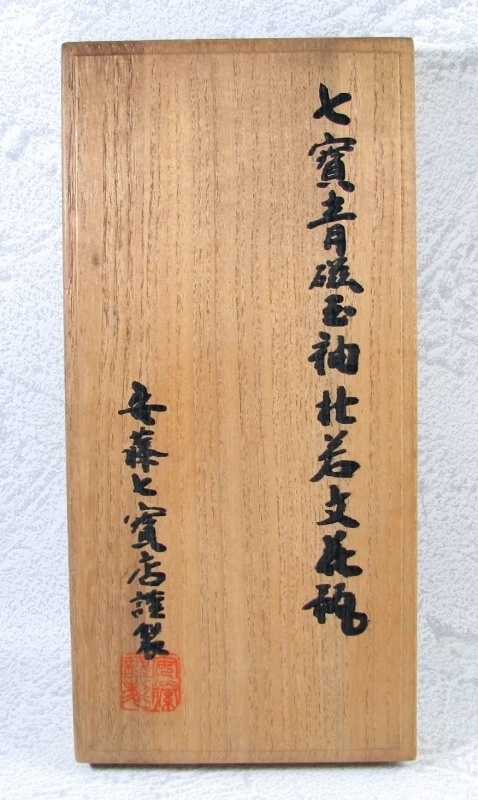 七寳青磁玉袖杜若文花瓶
安藤七寳店謹製